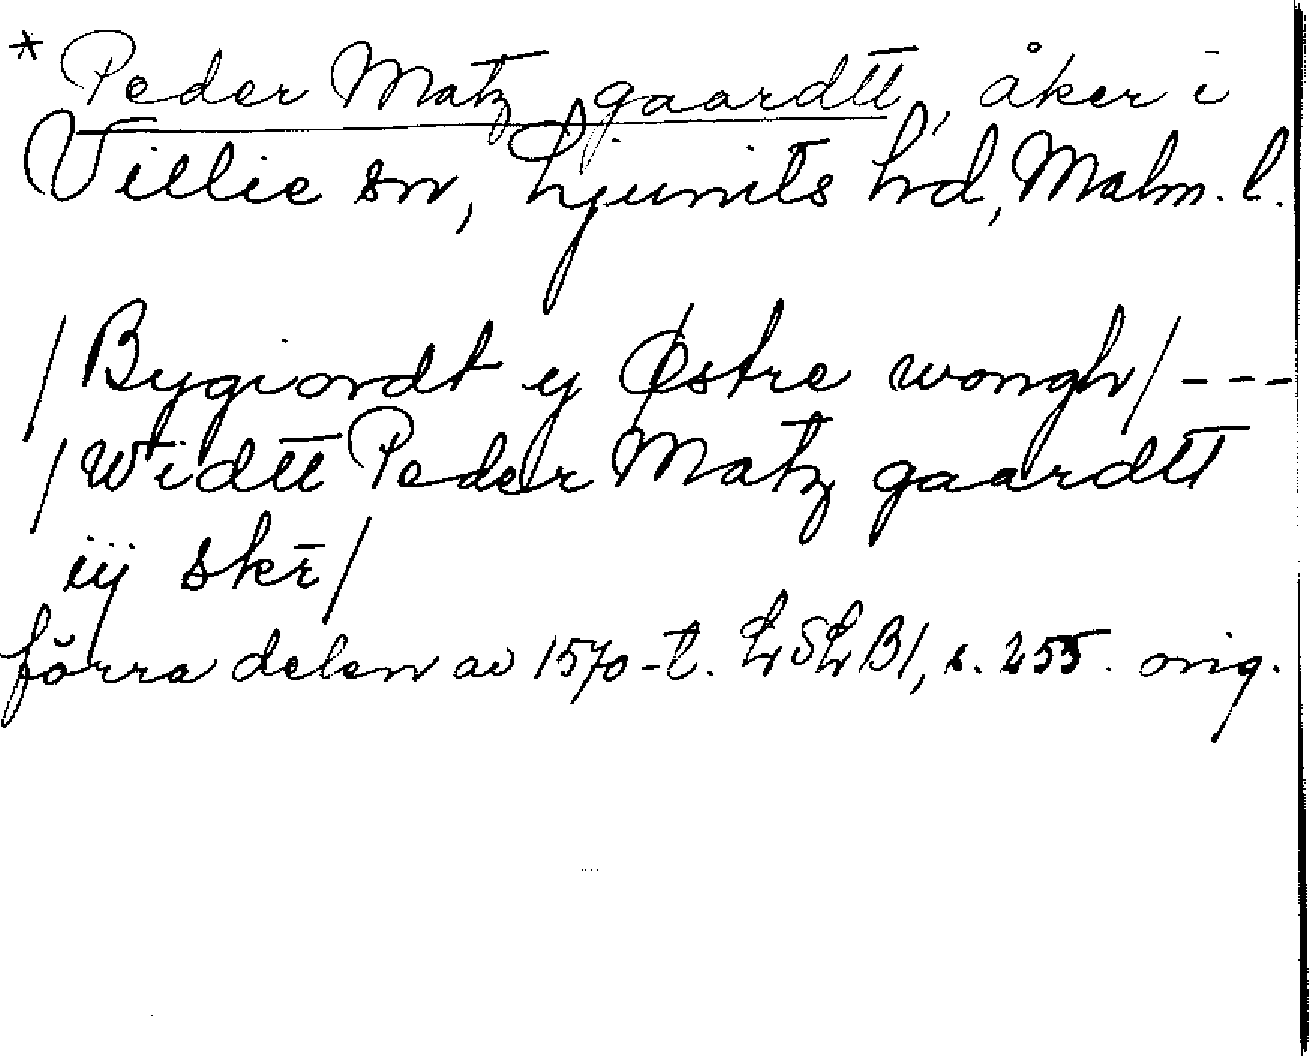 * Peder Matz gaardtt, åker i
Villie sn, Ljunits hd, Malm. l.
/Bygiordt y Østre wongh/ ---
/Widtt Peder Matz gaardtt
iij skr̄/
förra delen av 1570-t. LSLB1, s. 255. orig.